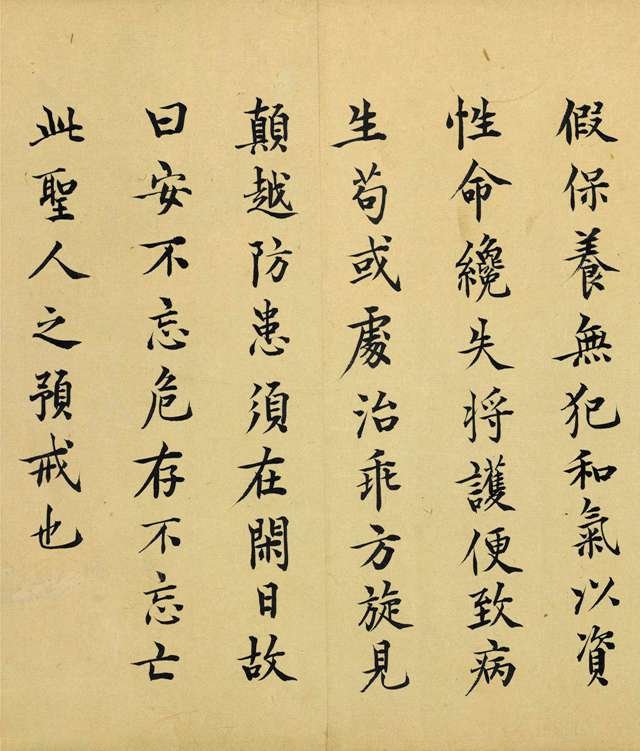 假保養無犯和氣以資
性命纔失将護便致病
生苟或處治乖方旋見
顛越防患須在閑日故
曰安不忘危存不忘亡
此聖人之預戒也